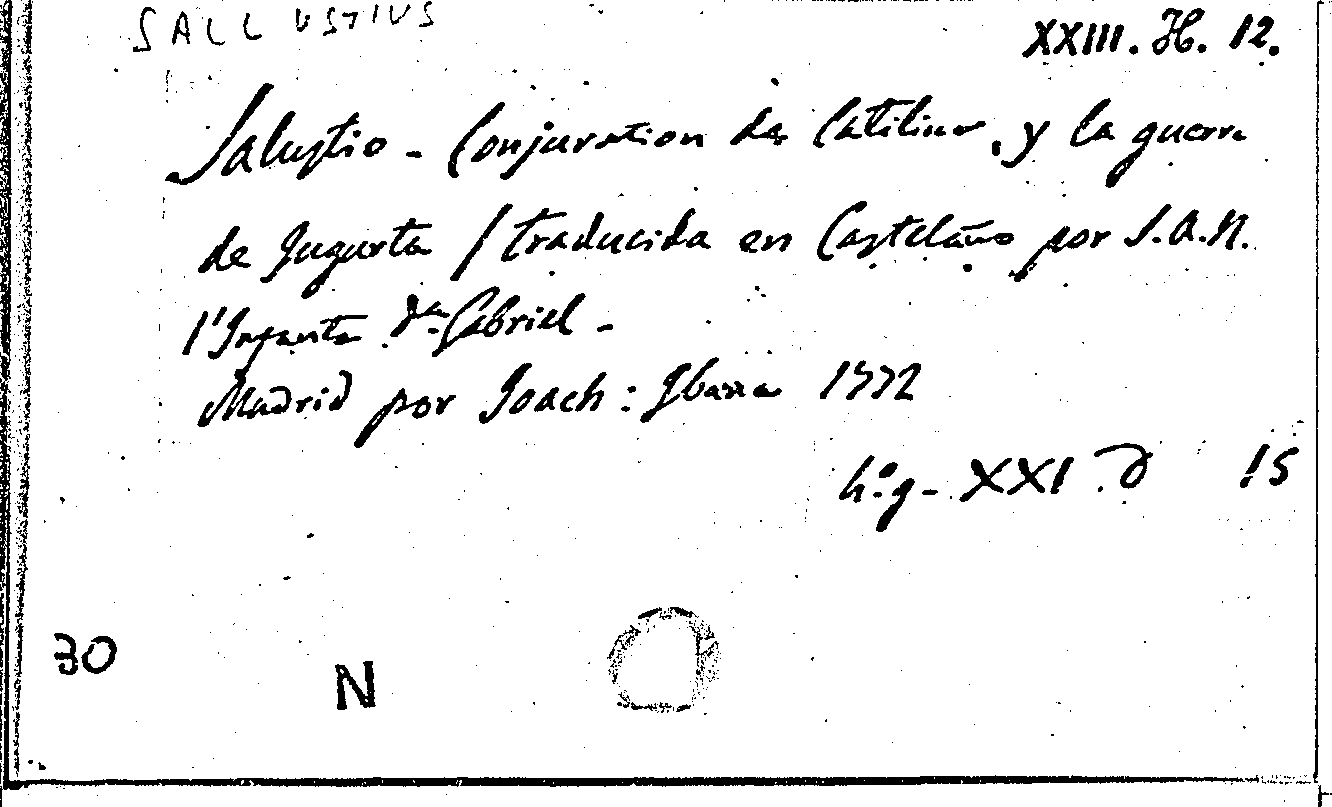 SALLUSTIUS
XXIII. H. 12.
Salustio - Conjuration de Catilina, y la guerra
de Jugurta / traducida en Castelano por S.A.R.
l'Infante Dn Gabriel -
Madrid por Joach: Ybarra 1772
4.o g- XXI. D 15
30
N